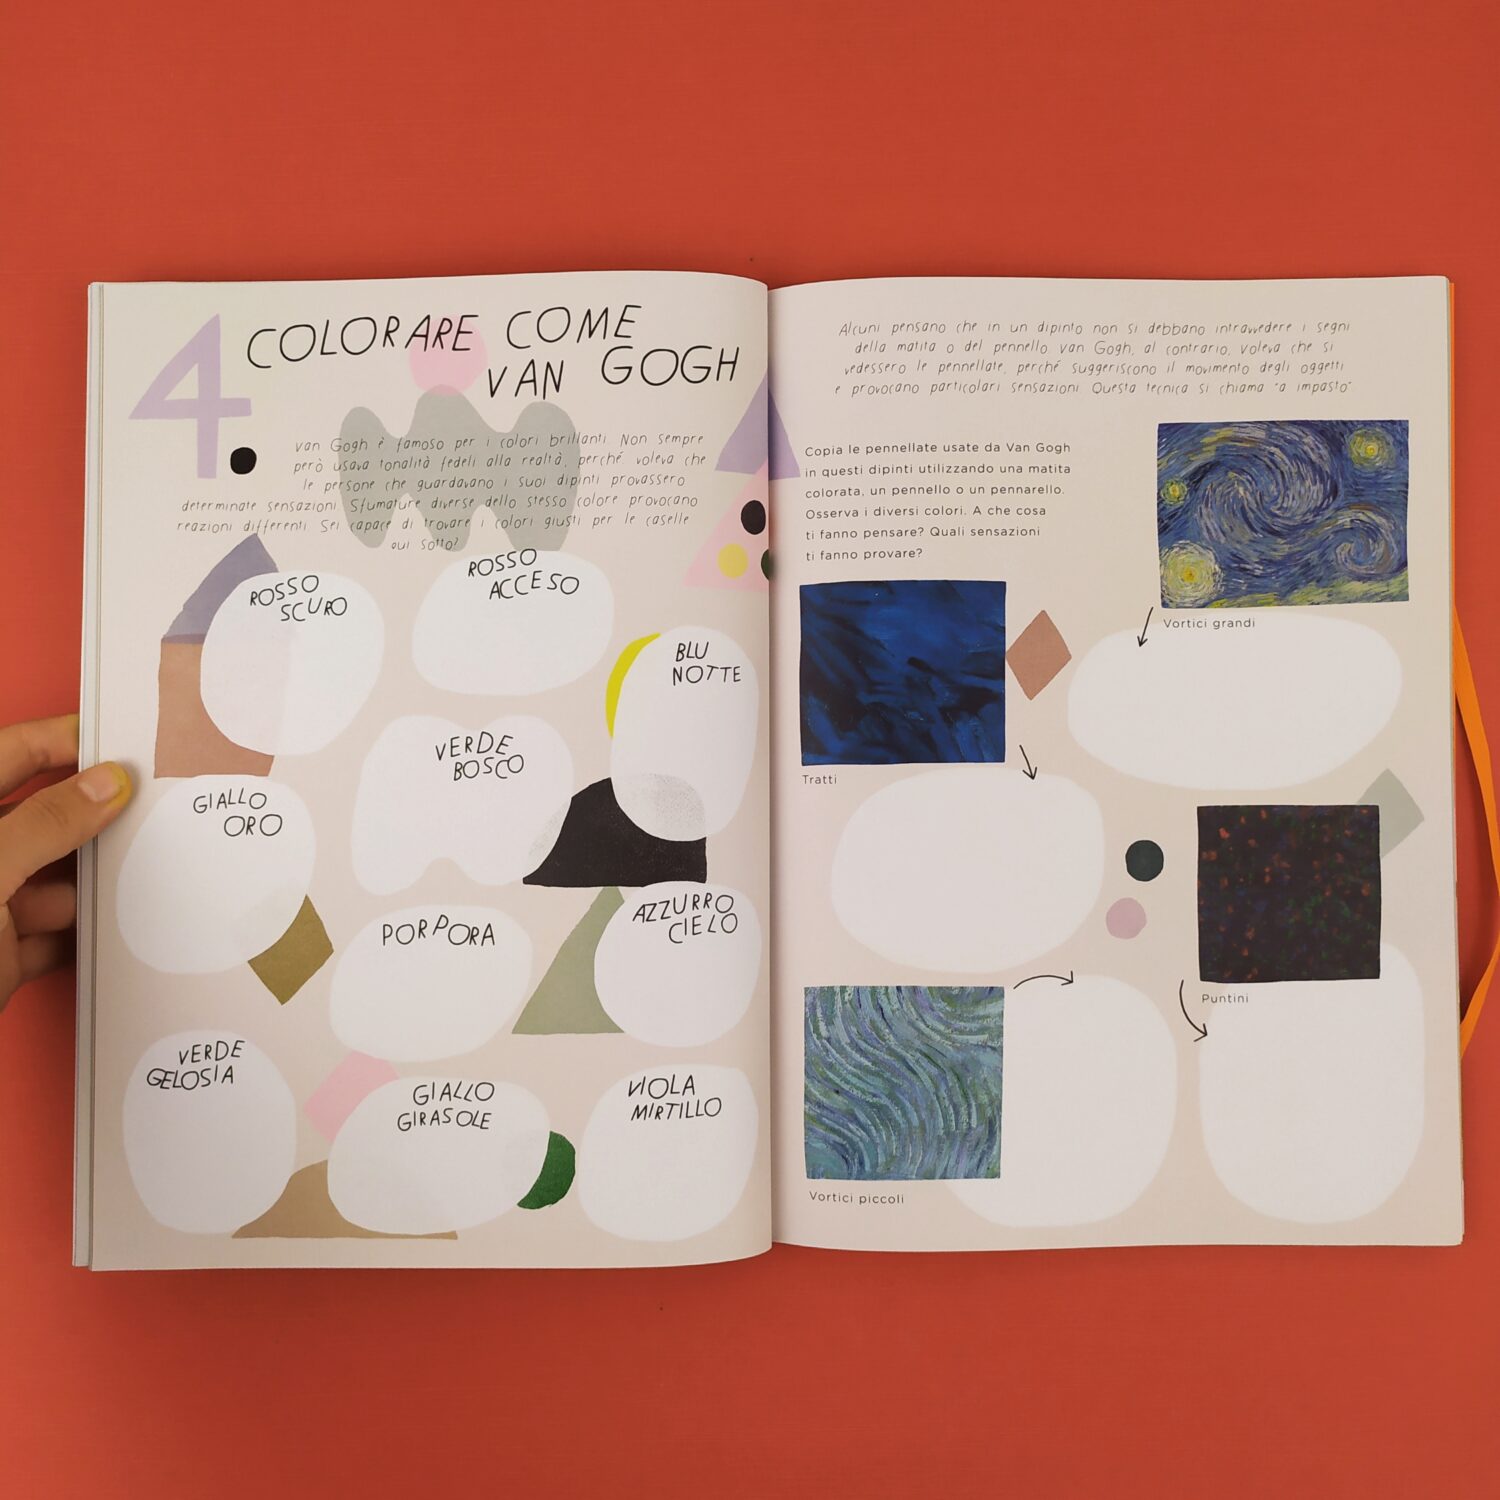 4.
COLORARE COME
VAN GOGH
Van Gogh è famoso per i colori brillanti. Non sempre
però usava tonalità fedeli alla realtà, perché voleva che
le persone che guardavano i suoi dipinti provassero
determinate sensazioni. Sfumature diverse dello stesso colore provocano
reazioni differenti. Sei capace di trovare i colori giusti per le caselle
qui sotto?
ROSSO
SCURO
ROSSO
ACCESO
BLU
NOTTE
VERDE
BOSCO
GIALLO
ORO
PORPORA
AZZURRO
CIELO
VERDE
GELOSIA
GIALLO
GIRASOLE
VIOLA
MIRTILLO
Alcuni pensano che in un dipinto non si debbano intravvedere i segni
della matita o del pennello. Van Gogh, al contrario, voleva che si
vedessero le pennellate, perché suggeriscono il movimento degli oggetti
e provocano particolari sensazioni. Questa tecnica si chiama "a impasto"
Copia le pennellate usate da Van Gogh
in questi dipinti utilizzando una matita
colorata, un pennello o un pennarello.
Osserva i diversi colori. A che cosa
ti fanno pensare? Quali sensazioni
ti fanno provare?
Vortici grandi
Tratti
Puntini
Vortici piccoli